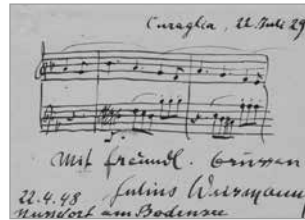 Curaglia, 22. Juli 29
Mit freundl. Grüssen
Julius Weismann
22.4.48
Nussdorf am Bodensee